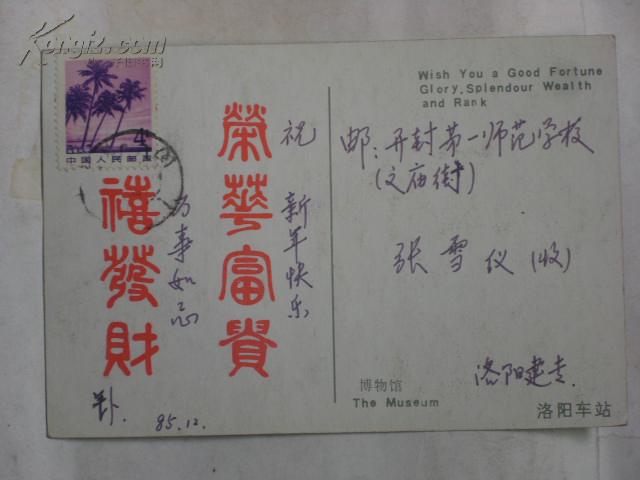 Kongfz.com
4
中国人民邮政
榮華富貴
禧發財
祝
新年快乐
万事如意
85.12.
Wish You a Good Fortune
Glory, Splendour Wealth
and Rank
邮:开封第一师范学校
(文庙街)
张雪仪(收)
洛阳建专.
博物馆
The Museum
洛阳车站